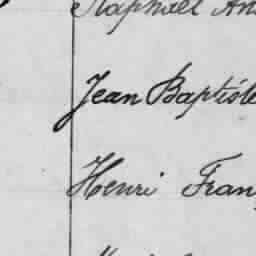 Raphaël An
Jean Baptiste
Henri Fran